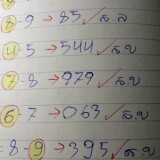 8-9 → 85 ✓ ล ล
4-5 → 544 ✓ ล.บ
7-8 → 979 ✓ ล.บ
6-7 → 063 ✓ ล.บ
=8-9 → 395 ✓ ล.บ